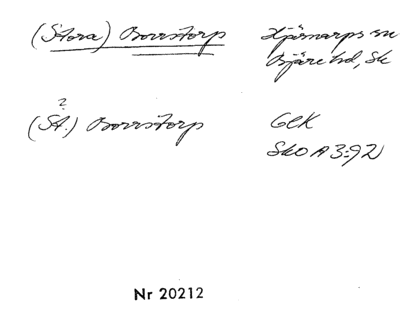 (Stora) Borrstorp Hjärnarps sn
Bjäre hd, Sk
?
(St.) Borrstorp GEK
SkO A3:92
Nr 20212